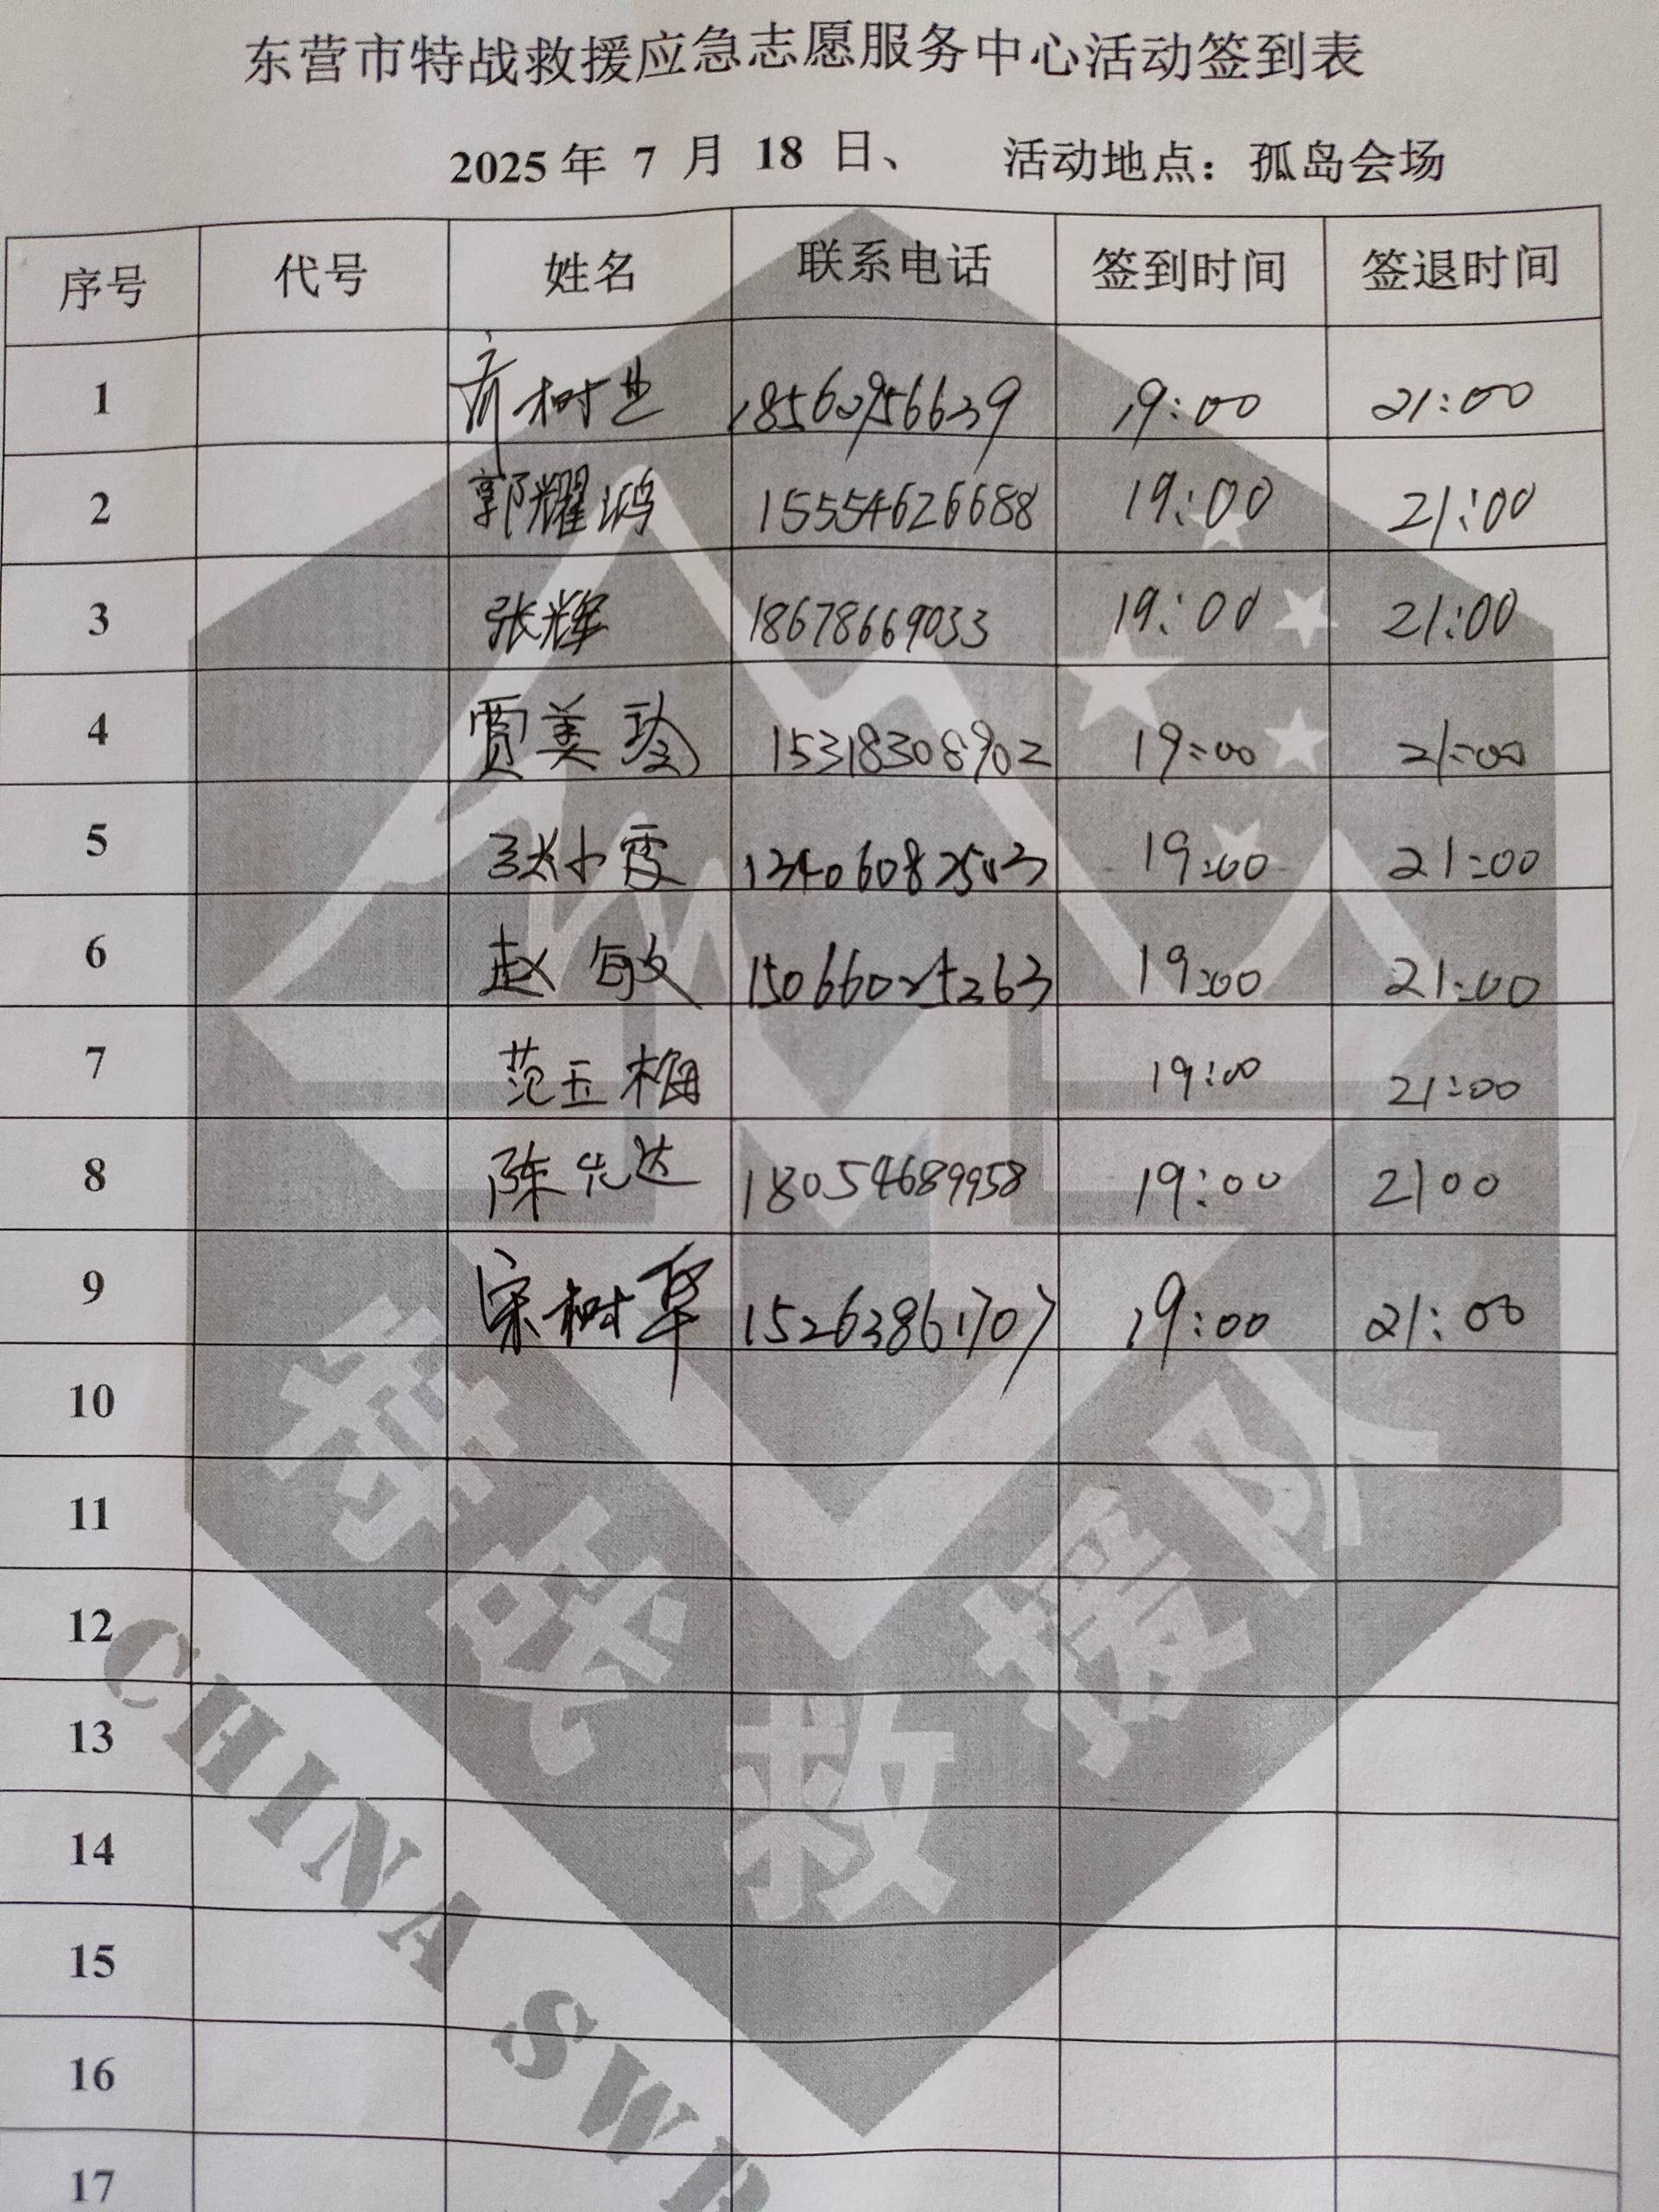 东营市特战救援应急志愿服务中心活动签到表
2025年 7 月 18 日、 活动地点：孤岛会场
序号 代号 姓名 联系电话 签到时间 签退时间
1 齐树 19:00 21:00
2 郭耀鸿 15554626688 19:00 21:00
3 张辉 18678669033 19:00 21:00
4 贾美玲 15318308902 19:00 21:00
5 小霞 19:00 21:00
6 赵敏 15066025263 19:00 21:00
7 范玉梅 19:00 21:00
8 陈先达 18054689958 19:00 2100
9 宋树军 15263861707 19:00 21:00
10
11
12
13
14
15
16
17
特战救援队
CHINA SWR